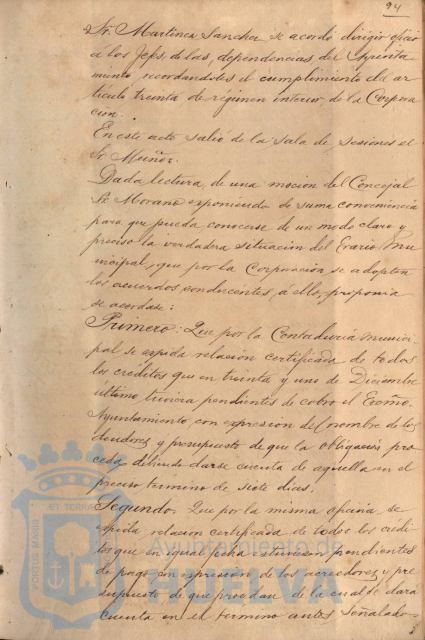 94
Sr. Martinez Sanchez se acordó dirigir oficio
á los Jefes de las dependencias del Ayunta
miento recordandoles el cumplimiento del ar
tículo treinta de régimen interior de la Corpora
ción.
En este acto salió de la sala de sesiones el
Sr Muñoz.
Dada lectura de una mocion del Concejal
Sr Morano exponiendo de suma conveniencia
para que pueda conocerse de un modo claro y
preciso la verdadera situacion del Erario Mu
nicipal, que por la Corporación se adopten
los acuerdos conducentes á ello, proponia
se acordase:
Primero: Que por la Contaduria munici
pal se expida relación certificada de todos
los creditos que en treinta y uno de Diciembre
último tuviera pendientes de cobro el Excmo
Ayuntamiento, con expresion del nombre de los
deudores y presupuesto de que la obligación pro
ceda, debiendo darse cuenta de aquella en el
preciso termino de siete dias.
Segundo. Que por la misma oficina se
expida relación certificada de todos los credi
tos que en igual fecha estuvieran pendientes
de pago con expresion de los acreedores y pre
supuesto de que procedan de la cual se dara
cuenta en el termino antes señalado.
PORTUS MARIS ET TERRAE
Ayuntamiento de
HUELVA